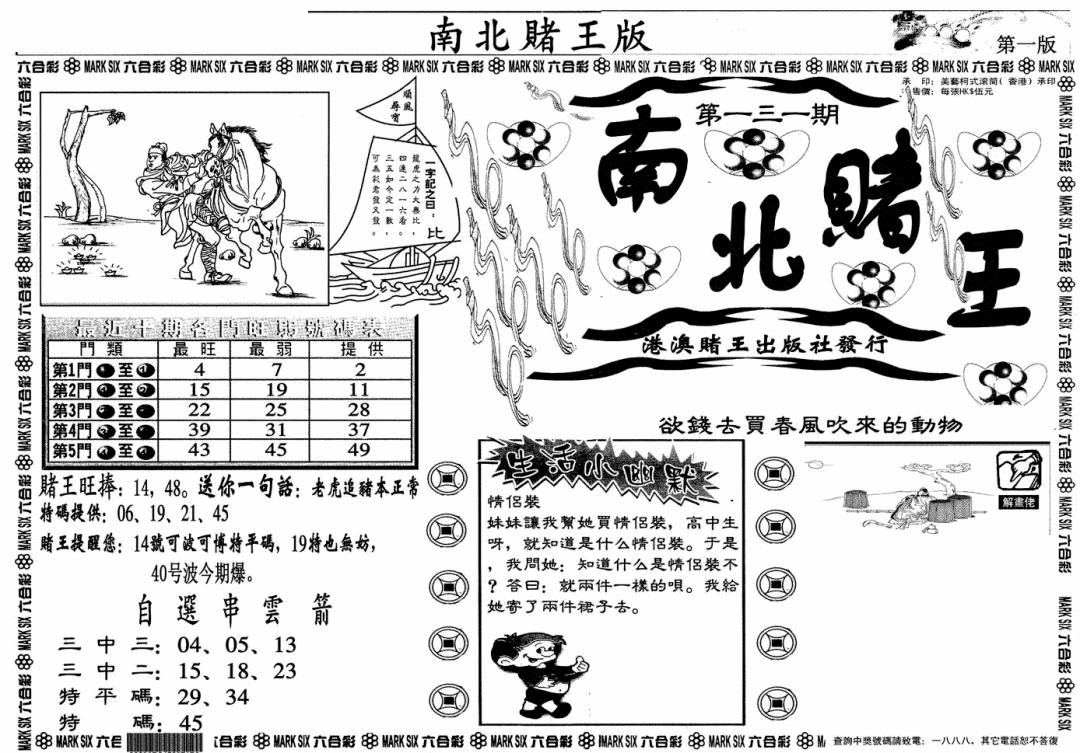 南北賭王版
第一版
六合彩 MARK SIX 六合彩 MARK SIX 六合彩 MARK SIX 六合彩 MARK SIX 六合彩 MARK SIX 六合彩 MARK SIX 六合彩 MARK SIX 六合彩 MARK SIX 六合彩 MARK SIX 六合彩 MARK SIX
承 印：美藝柯式滾筒（香港）承印
售價：每張HK$伍元
順風尋寶
一字記之曰：比
龍虎之力大無比，
四逢二八一六看。
三五如今定一數，
可為彩君發又發。
第一三一期
南北賭王
港澳賭王出版社發行
最近十期各門旺弱號碼表
門類 最旺 最弱 提供
第1門 至 4 7 2
第2門 至 15 19 11
第3門 至 22 25 28
第4門 至 39 31 37
第5門 至 43 45 49
賭王旺捧：14，48。送你一句話：老虎追豬本正常
特碼提供：06、19、21、45
賭王提醒您：14號可波可博特平碼，19特也無妨，
40号波今期爆。
自選串雲箭
三中三：04、05、13
三中二：15、18、23
特平碼：29、34
特碼：45
欲錢去買春風吹來的動物
生活小幽默
情侶裝
妹妹讓我幫她買情侶裝，高中生
呀，就知道是什么情侶裝。于是
，我問她：知道什么是情侶裝不
？答曰：就兩件一樣的唄。我給
她寄了兩件裙子去。
解畫佬
查詢中獎號碼請致電：一八八八、其它電話恕不答復